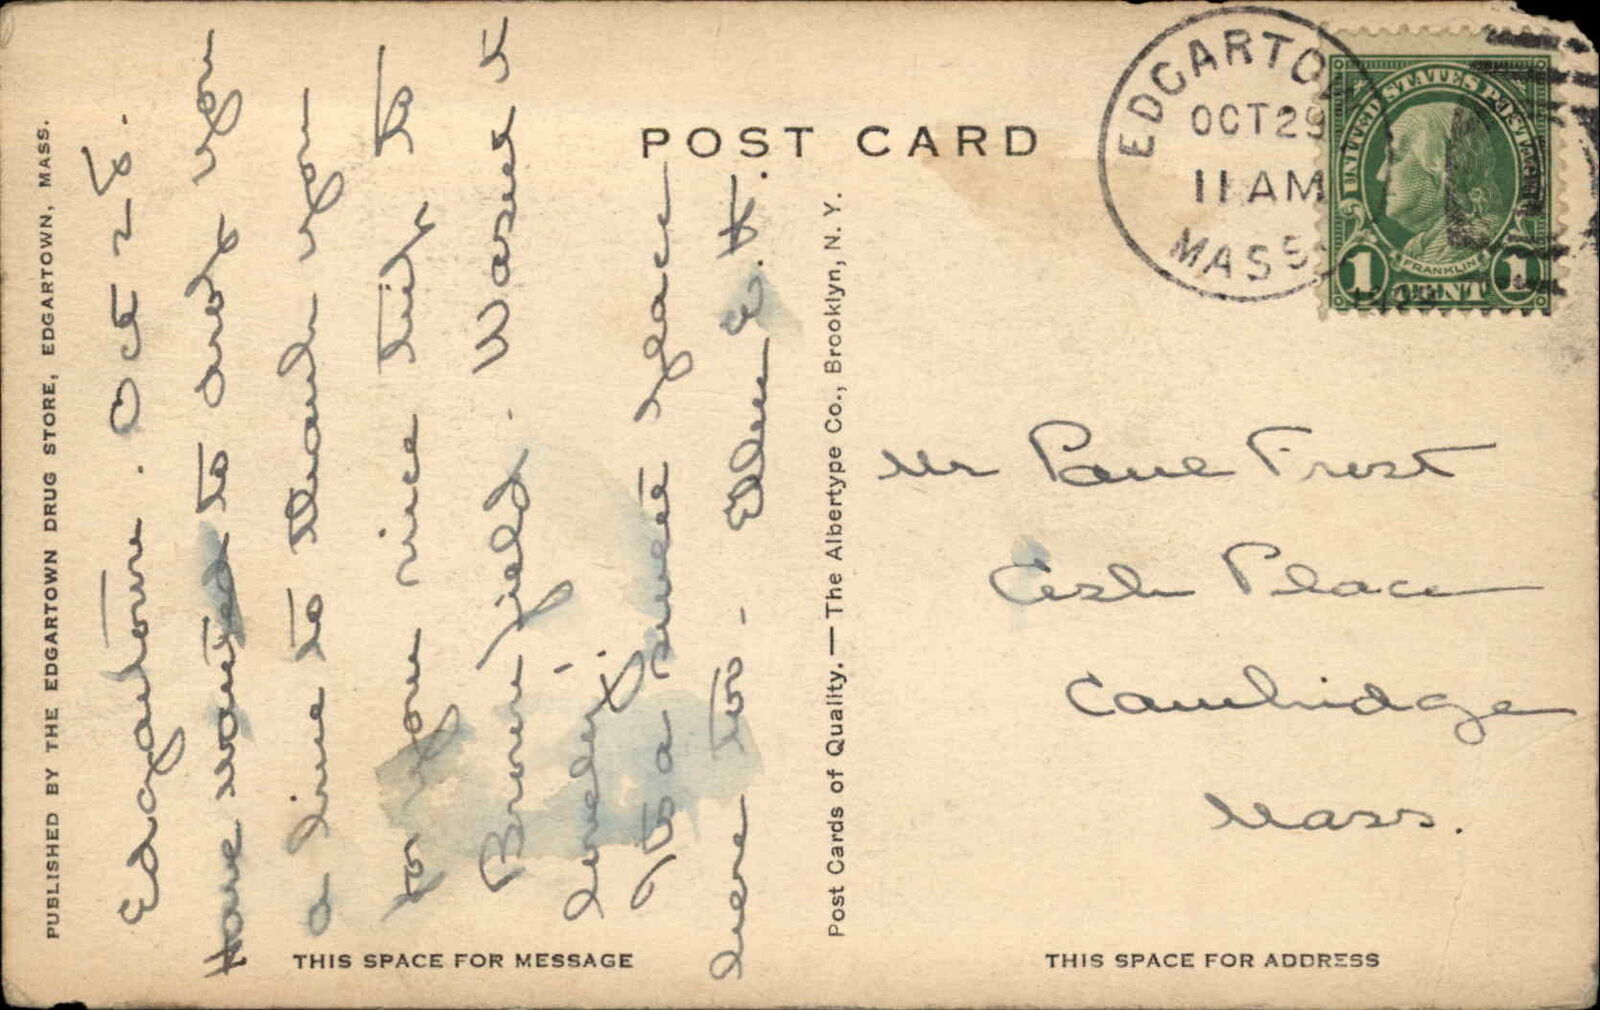 POST CARD
EDGARTO
OCT 29
11 AM
MASS
UNITED STATES POSTAGE
FRANKLIN
1 CENT 1
PUBLISHED BY THE EDGARTOWN DRUG STORE, EDGARTOWN, MASS.
Edgartown. Oct 28.
Have wanted to drop you
a line to thank you
for you nice trip to
Brownfield. Wasn't it
lovely!
'Tis a sweet place
here too - Ellen E. H.
THIS SPACE FOR MESSAGE
Post Cards of Quality. — The Albertype Co., Brooklyn, N. Y.
Mr Paul Frost
Ash Place
Cambridge
Mass.
THIS SPACE FOR ADDRESS